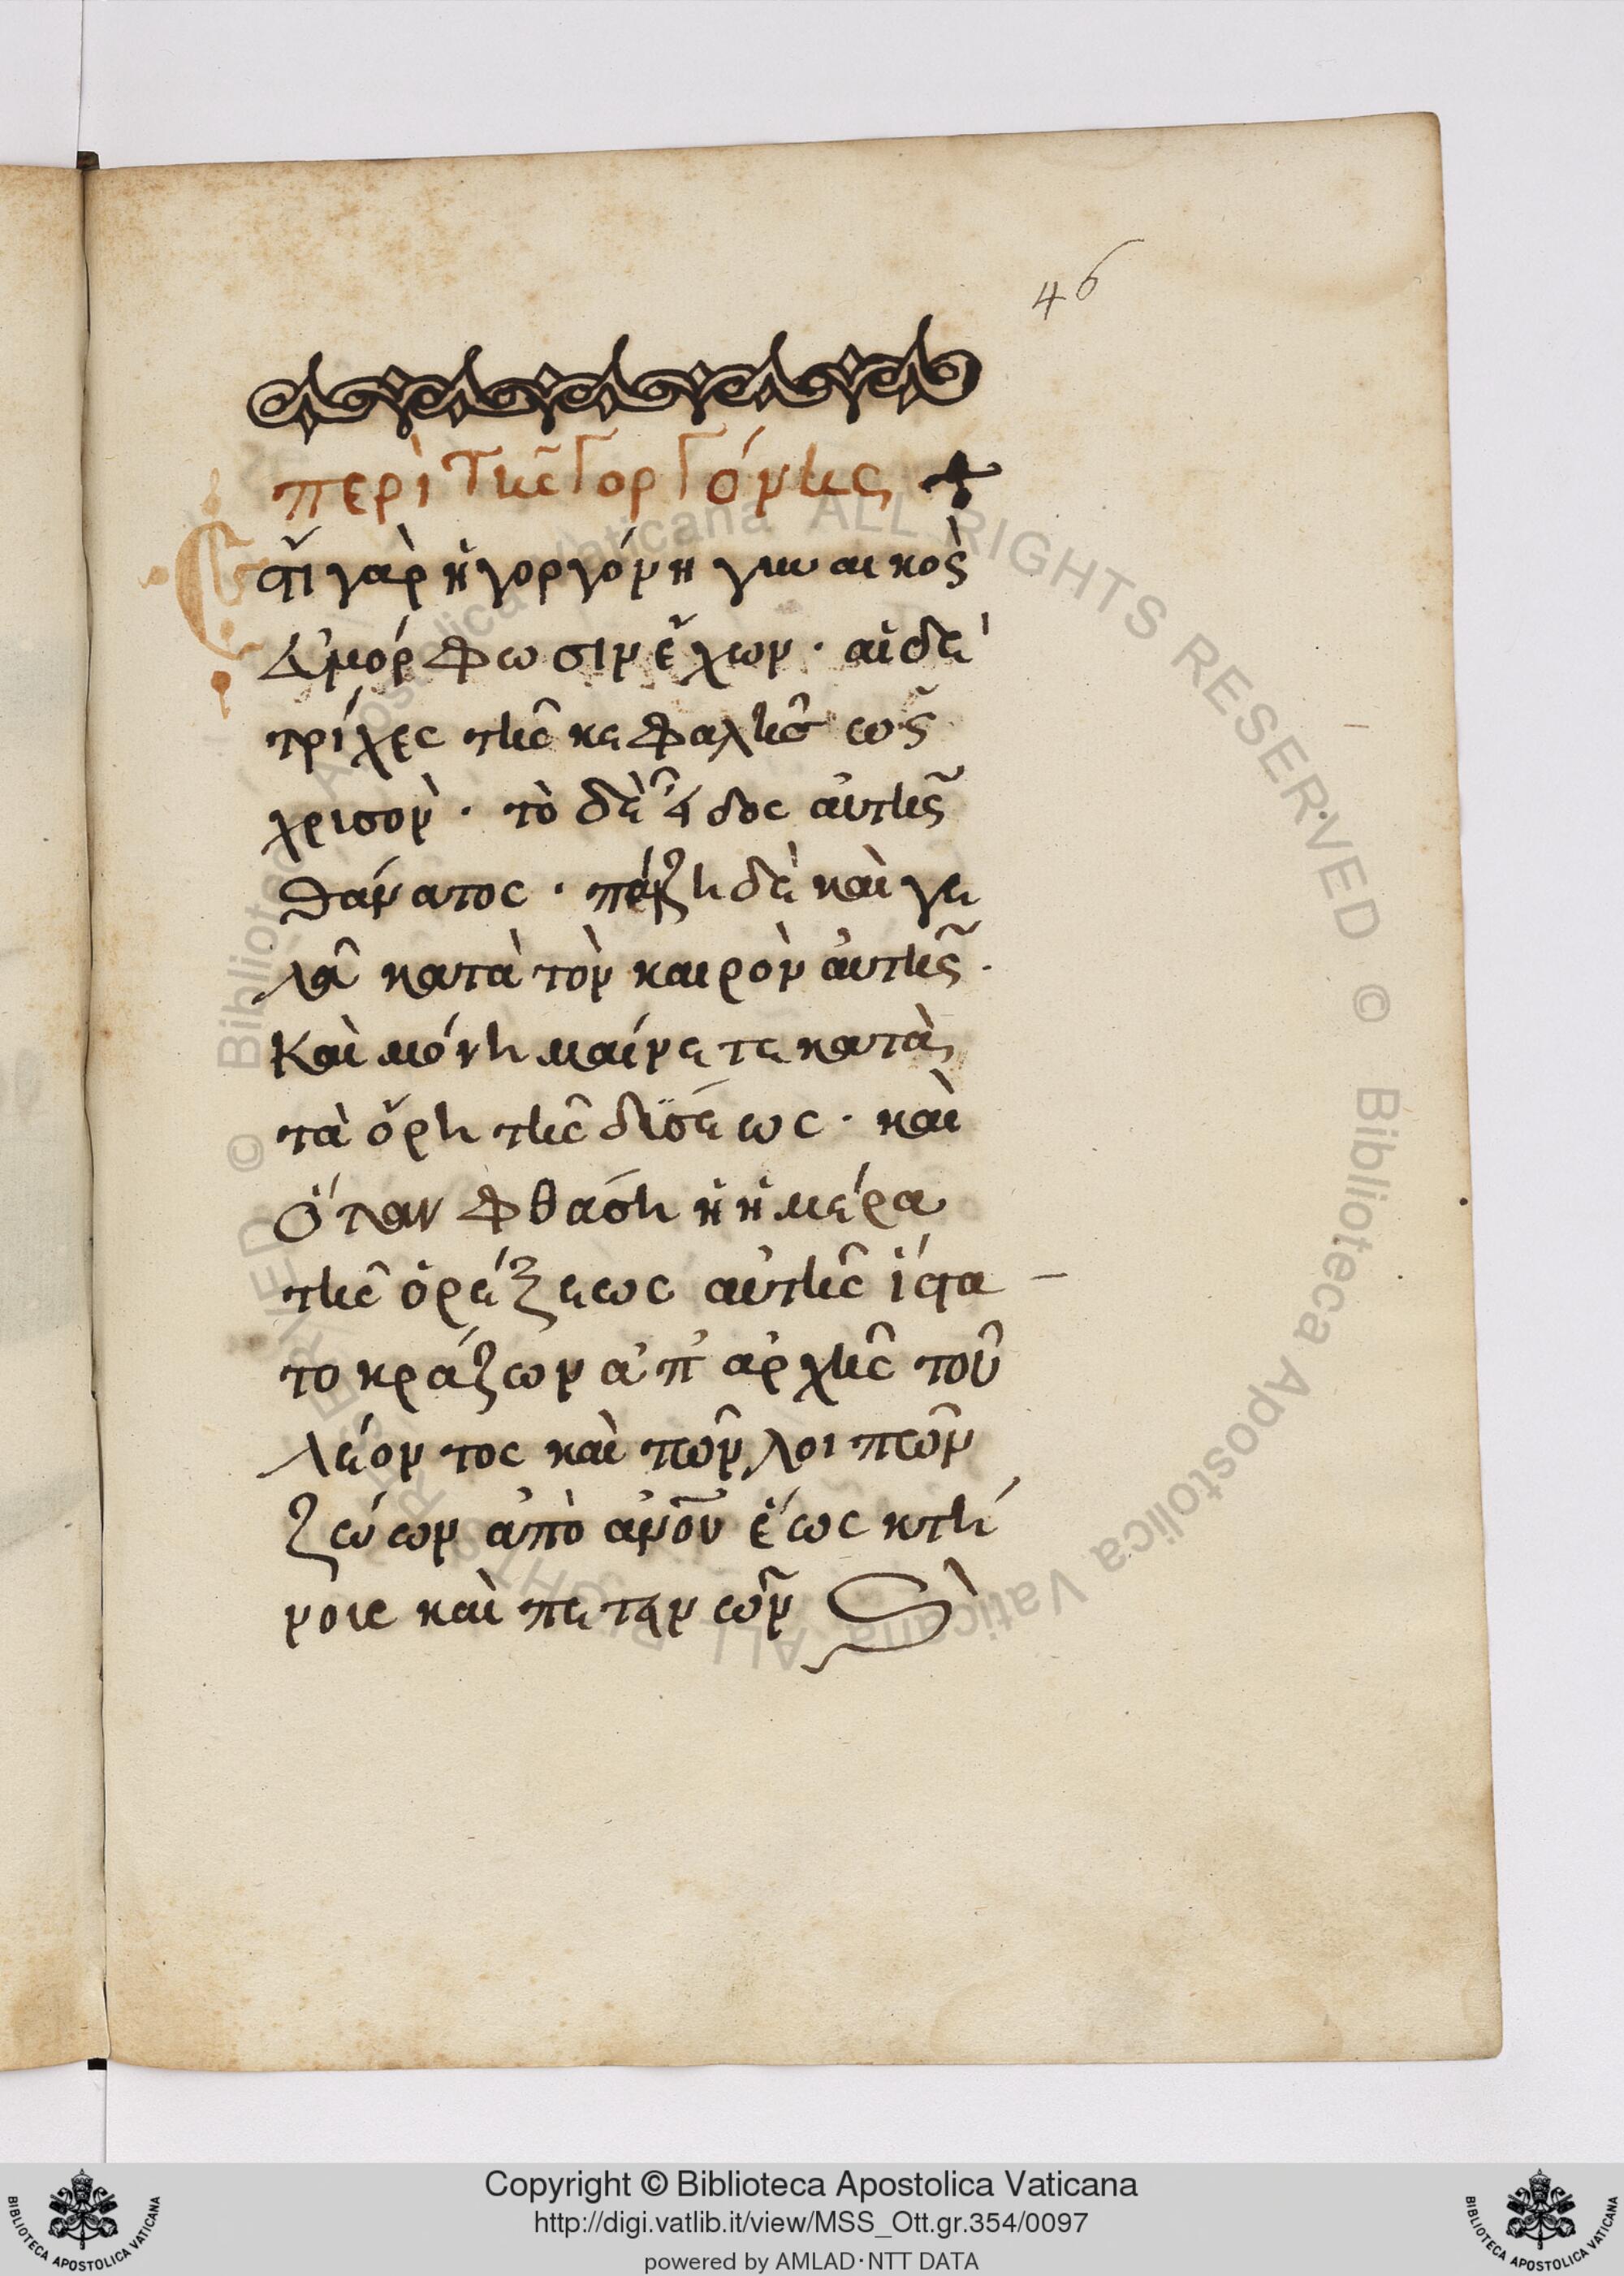 46
περὶ τῆς γοργόνης
Ἔστι γὰρ ἡ γοργόνη γυναικὸς
μόρφωσιν ἔχων · αἱ δὲ
τρίχες τῆς κεφαλῆς ὡς
χρισον · τὸ δὲ εἶδος αὐτῆς
θάνατος · πέζη δὲ καὶ γε
λᾶ κατὰ τὸν καιρὸν αὐτῆς ·
Καὶ μόνη μαίνετε κατὰ
τὰ ὄρη τῆς δϊσεως · καὶ
ὅταν φθάση ἡ ἡμέρα
τῆς ὀρέξεως αὐτῆς ἵστα
το κράζων ἀπ' ἀρχῆς τοῦ
λέοντος καὶ τῶν λοιπῶν
ζώων ἀπὸ ἀνοῦ ἕως κτή
νοις καὶ πετενῶν
© Biblioteca Apostolica Vaticana ALL RIGHTS RESERVED © Biblioteca Apostolica Vaticana ALL RIGHTS RESERVED
Copyright © Biblioteca Apostolica Vaticana
http://digi.vatlib.it/view/MSS_Ott.gr.354/0097
powered by AMLAD·NTT DATA
BIBLIOTECA APOSTOLICA VATICANA
BIBLIOTECA APOSTOLICA VATICANA